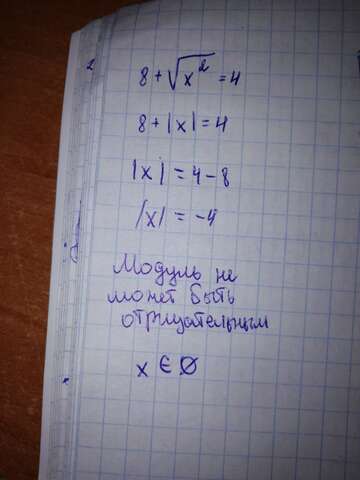 2
8 + √x² = 4
8 + |x| = 4
|x| = 4 - 8
|x| = -4
Модуль не
может быть
отрицательным
x ∈ ∅